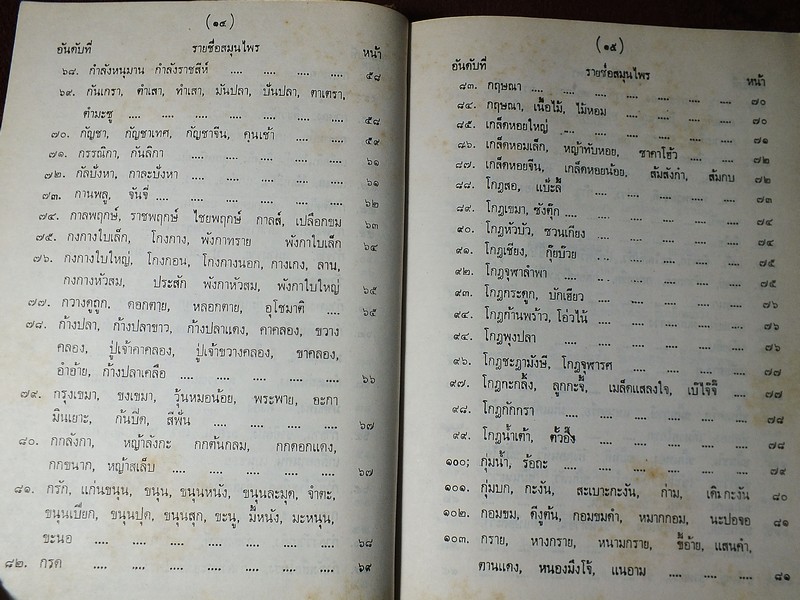 (๑๔)
อันดับที่ รายชื่อสมุนไพร หน้า
๖๘. กำลังหนุมาน กำลังราชสีห์ .... .... .... .... ๕๘
๖๙. กันเกรา, ตำเสา, ทำเสา, มันปลา, ปันปลา, ตาเตรา,
ตำมะซู .... .... .... .... .... .... ๕๘
๗๐. กัญชา, กัญชาเทศ, กัญชาจีน, คุนเช้า .... .... ๕๙
๗๑. กรรณิกา, กันลิกา .... .... .... .... ๖๑
๗๒. กัลปังหา, กาละปังหา .... .... .... .... ๖๑
๗๓. กานพลู, จันจี่ .... .... .... .... .... ๖๒
๗๔. กาลพฤกษ์, ราชพฤกษ์ ไชยพฤกษ์ กาลส์, เปลือกขม ๖๓
๗๕. กงกางใบเล็ก, โกงกาง, พังกาทราย พังกาใบเล็ก ๖๔
๗๖. กงกางใบใหญ่, โกงกอน, โกงกางนอก, กางเกง, ลาน,
กงกางหัวสม, ประสัก พังกาหัวสม, พังกาใบใหญ่ ๖๕
๗๗. กวางดูถูก, ดอกตาย, หลอกตาย, อุโชมาติ .... ๖๕
๗๘. ก้างปลา, ก้างปลาขาว, ก้างปลาแดง, คาคลอง, ขวาง
คลอง, ปู่เจ้าคาคลอง, ปู่เจ้าขวางคลอง, ขาคลอง,
อำอ้าย, ก้างปลาเคลือ .... .... .... .... .... ๖๖
๗๙. กรุงเขมา, ขงเขมา, วุ้นหมอน้อย, พระพาย, อะกา
มินเยาะ, ก้นปิด, สีฟัน .... .... .... .... ๖๗
๘๐. กกลังกา, หญ้าลังกะ กกต้นกลม, กกดอกแดง,
กกขนาก, หญ้าสเล็บ .... .... .... .... .... ๖๗
๘๑. กรัก, แก่นขนุน, ขนุน, ขนุนหนัง, ขนุนละมุด, จำดะ,
ขนุนเบียก, ขนุนปุด, ขนุนสุก, ขะนู, มี่หนัง, มะหนุน,
ขะนอ .... .... .... .... .... .... .... ๖๘
๘๒. กรด .... .... .... .... .... .... .... ๖๙
(๑๕)
อันดับที่ รายชื่อสมุนไพร หน้า
๘๓. กฤษณา .... .... .... .... .... .... ๗๐
๘๔. กฤษณา, เนื้อไม้, ไม้หอม .... .... .... .... ๗๐
๘๕. เกล็ดหอยใหญ่ .... .... .... .... .... ๗๑
๘๖. เกล็ดหอมเล็ก, หญ้าทับหอย, ชาดาโฮ้ว .... .... ๗๒
๘๗. เกล็ดหอยจีน, เกล็ดหอยน้อย, ส้มสังกำ, ส้มกบ ๗๒
๘๘. โกฎสอ, แป๊ะลี้ .... .... .... .... .... ๗๓
๘๙. โกฎเขมา, ซังตุ๊ก .... .... .... .... .... ๗๔
๙๐. โกฎหัวบัว, ชวนเกียง .... .... .... .... ๗๔
๙๑. โกฎเชียง, กุ๊ยบ๊วย .... .... .... .... .... ๗๕
๙๒. โกฎจุฬาลำพา .... .... .... .... .... ๗๕
๙๓. โกฎกระดูก, บักเฮียว .... .... .... .... ๗๖
๙๔. โกฎก้านพร้าว, โอ่วไน้ .... .... .... .... ๗๖
๙๕. โกฎพุงปลา .... .... .... .... .... ๗๖
๙๖. โกฎชะฎามังษี, โกฎจุพารศ .... .... .... .... ๗๗
๙๗. โกฎกะกลิ้ง, ลูกกะจี้, เมล็ดแสลงใจ, เบ๊ไจ๊จี๊ .... ๗๗
๙๘. โกฎกักกรา .... .... .... .... .... ๗๘
๙๙. โกฎน้ำเต้า, ตั้วอึ๊ง .... .... .... .... ๗๘
๑๐๐; กุ่มน้ำ, ร้อถะ .... .... .... .... .... ๗๙
๑๐๑. กุ่มบก, กะงัน, สะเบาะกะงัน, ก่าม, เดิมกะงัน ๘๐
๑๐๒. กอมขม, ดีงูต้น, กอมขมดำ, หมากกอม, นะปอจอ ๘๑
๑๐๓. กราย, หางกราย, หนามกราย, ขี้อ้าย, แสนคำ,
ตานแดง, หนองมึงโจ้, แนอาม .... .... .... ๘๑